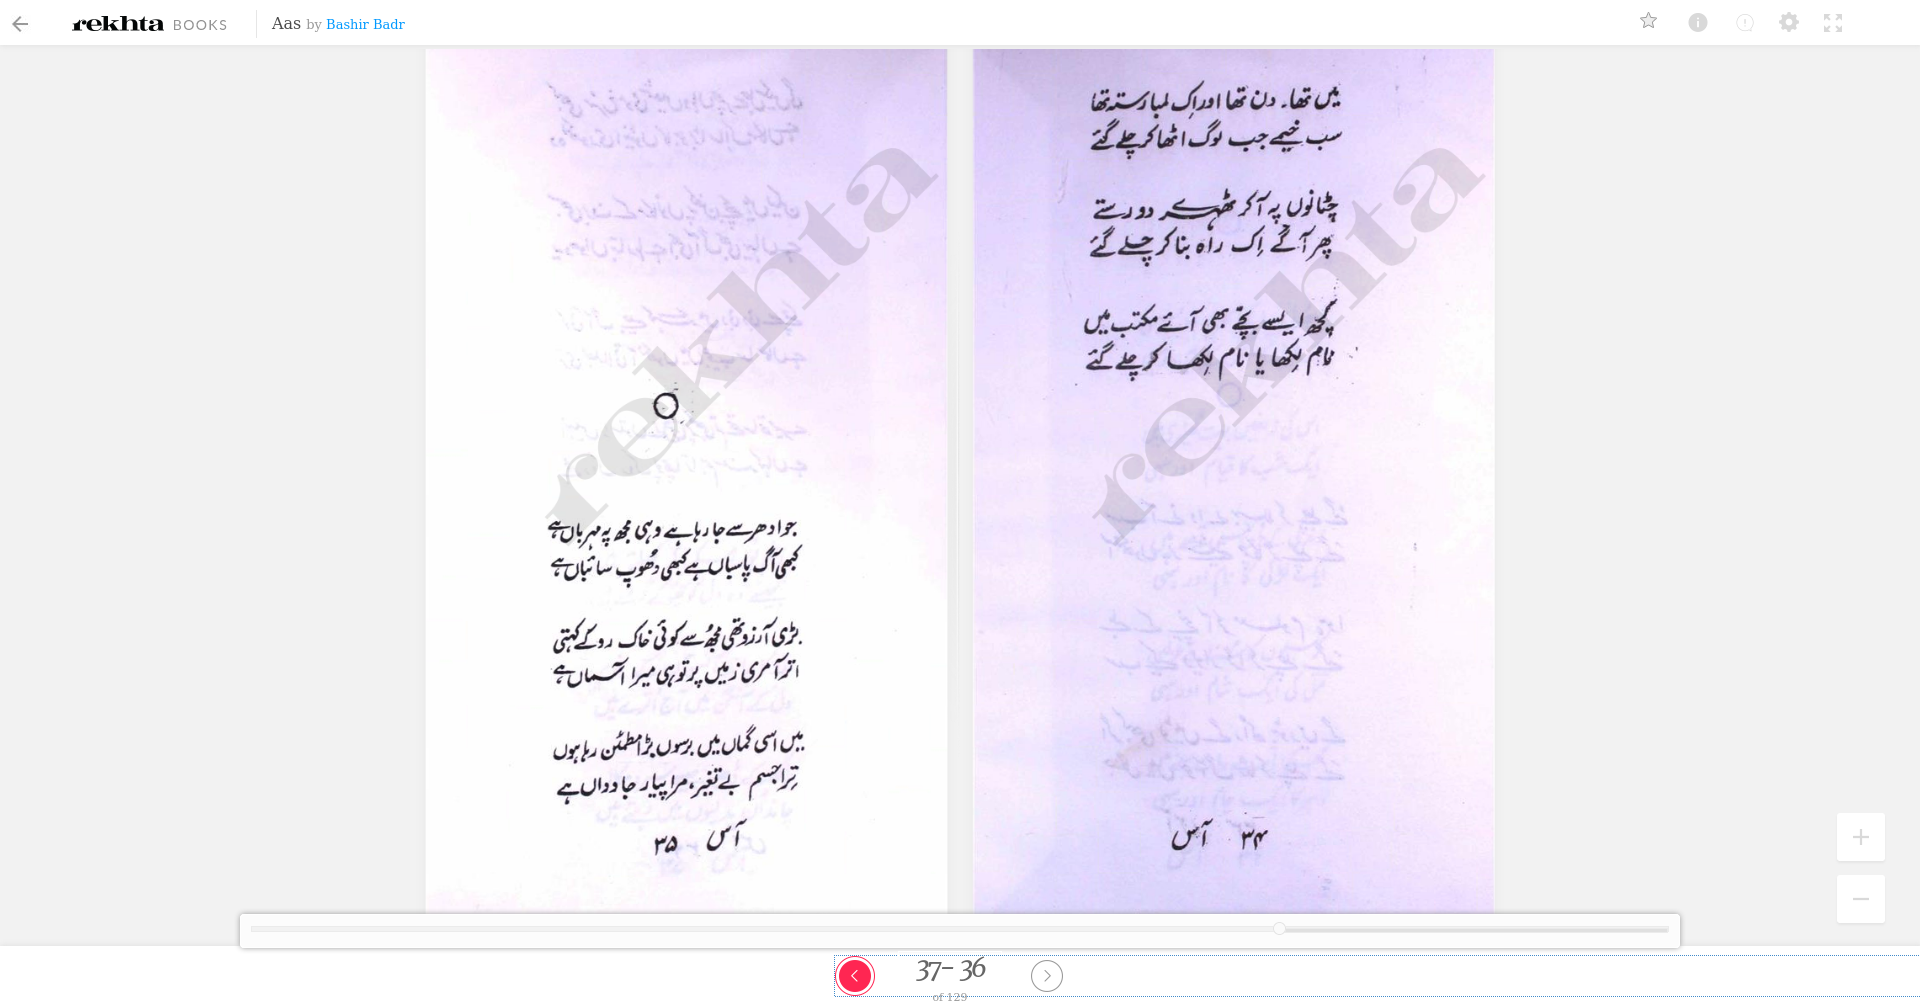 rekhta BOOKS Aas by Bashir Badr
میں تھا۔ دن تھا اور اِک لمبا رستہ تھا
سب خیمے جب لوگ اٹھا کر چلے گئے
چٹانوں پہ آکر ٹھہرے دو رستے
پھر آگے اِک راہ بنا کر چلے گئے
کچھ ایسے بچّے بھی آئے مکتب میں
نام لِکھا یا نام لِکھا کر چلے گئے
۳۴ آس
rekhta
جو ادھر سے جا رہا ہے وہی مجھ پہ مہرباں ہے
کبھی آگ پاسباں ہے کبھی دھُوپ سائباں ہے
بڑی آرزو تھی مجھُ سے کوئی خاک رو کے کہتی
اتر آ مری زمیں پر تو ہی میرا آسماں ہے
میں اسی گماں میں برسوں بڑا مطمئن رہا ہوں
تِرا جسم بے تغیّر، مرا پیار جاوداں ہے
آس ۳۵
rekhta
37- 36
of 129